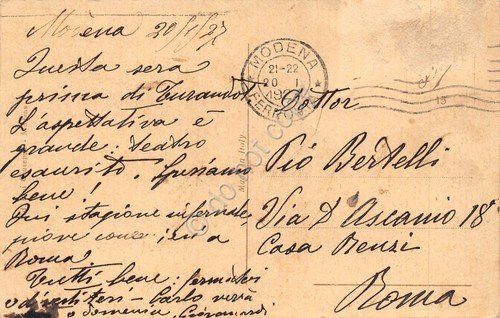 Modena 20/1/27
Questa sera
prima di Turandot
L'aspettativa è
grande: teatro
esaurito. Speriamo
bene!
Qui stagione infernale,
piove come ieri a
Roma
Tutti bene:
Carlo verrà
o domenica
MODENA
21-22
20 I
192
FERROVIA
13
Made in Italy
Dottor
Pio Bertelli
Via D'Ascanio 18
Casa Benzi
Roma
do not copy